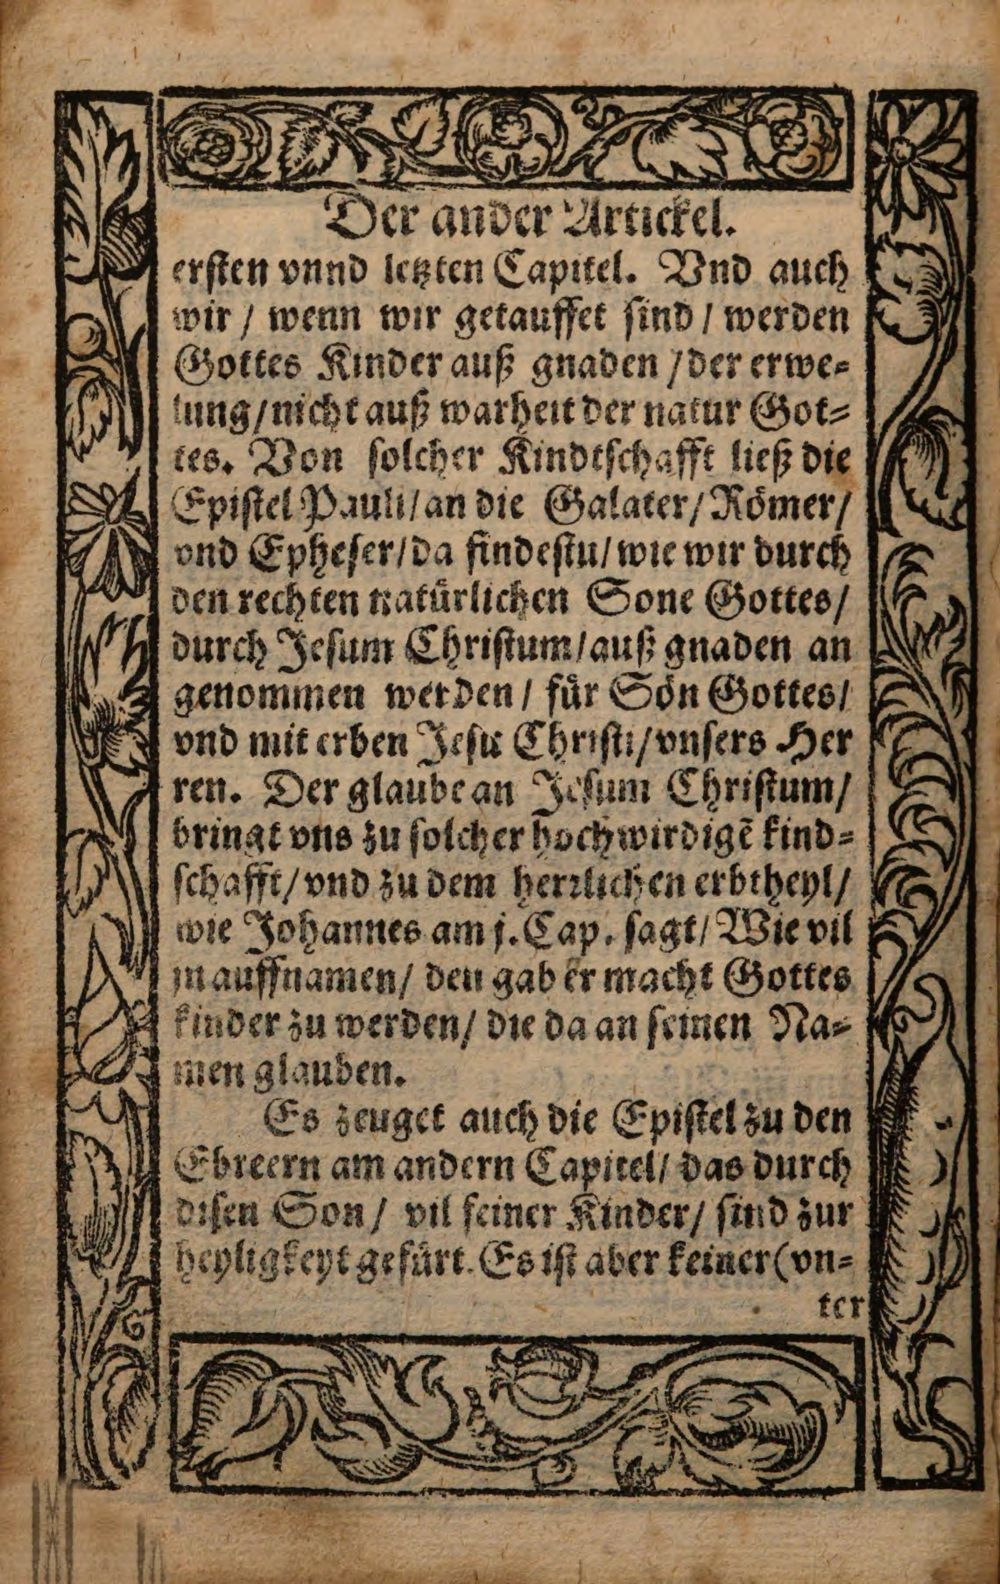 Der ander Artickel.
ersten vnnd letzten Capitel. Vnd auch
wir / wenn wir getauffet sind / werden
Gottes Kinder auß gnaden / der erwe⸗
lung / nicht auß warheit der natur Got⸗
tes. Von solcher Kindtschafft ließ die
Epistel Pauli / an die Galater / Römer /
vnd Epheser / da findestu / wie wir durch
den rechten natürlichen Sone Gottes /
durch Jesum Christum / auß gnaden an
genommen werden / für Sön Gottes /
vnd mit erben Jesu Christi / vnsers Her
ren. Der glaube an Jesum Christum /
bringt vns zu solcher hochwirdigẽ kind⸗
schafft / vnd zu dem herrlichen erbtheyl /
wie Johannes am j. Cap. sagt / Wie vil
jn auffnamen / den gab er macht Gottes
kinder zu werden / die da an seinen Na⸗
men glauben.
Es zeuget auch die Epistel zu den
Ebreern am andern Capitel / das durch
disen Son / vil seiner Kinder / sind zur
heyligkeyt gefürt. Es ist aber keiner (vn⸗
ter